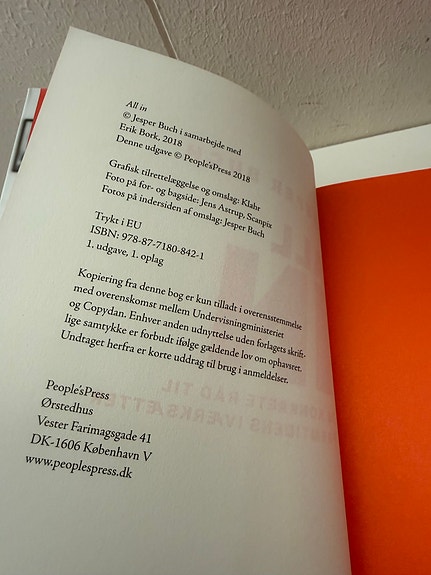 All in
© Jesper Buch i samarbejde med
Erik Bork, 2018
Denne udgave © People'sPress 2018
Grafisk tilrettelæggelse og omslag: Klahr
Foto på for- og bagside: Jens Astrup, Scanpix
Fotos på indersiden af omslag: Jesper Buch
Trykt i EU
ISBN: 978-87-7180-842-1
1. udgave, 1. oplag
Kopiering fra denne bog er kun tilladt i overensstemmelse
med overenskomst mellem Undervisningministeriet
og Copydan. Enhver anden udnyttelse uden forlagets skrift-
lige samtykke er forbudt ifølge gældende lov om ophavsret.
Undtaget herfra er korte uddrag til brug i anmeldelser.
People'sPress
Ørstedhus
Vester Farimagsgade 41
DK-1606 København V
www.peoplespress.dk